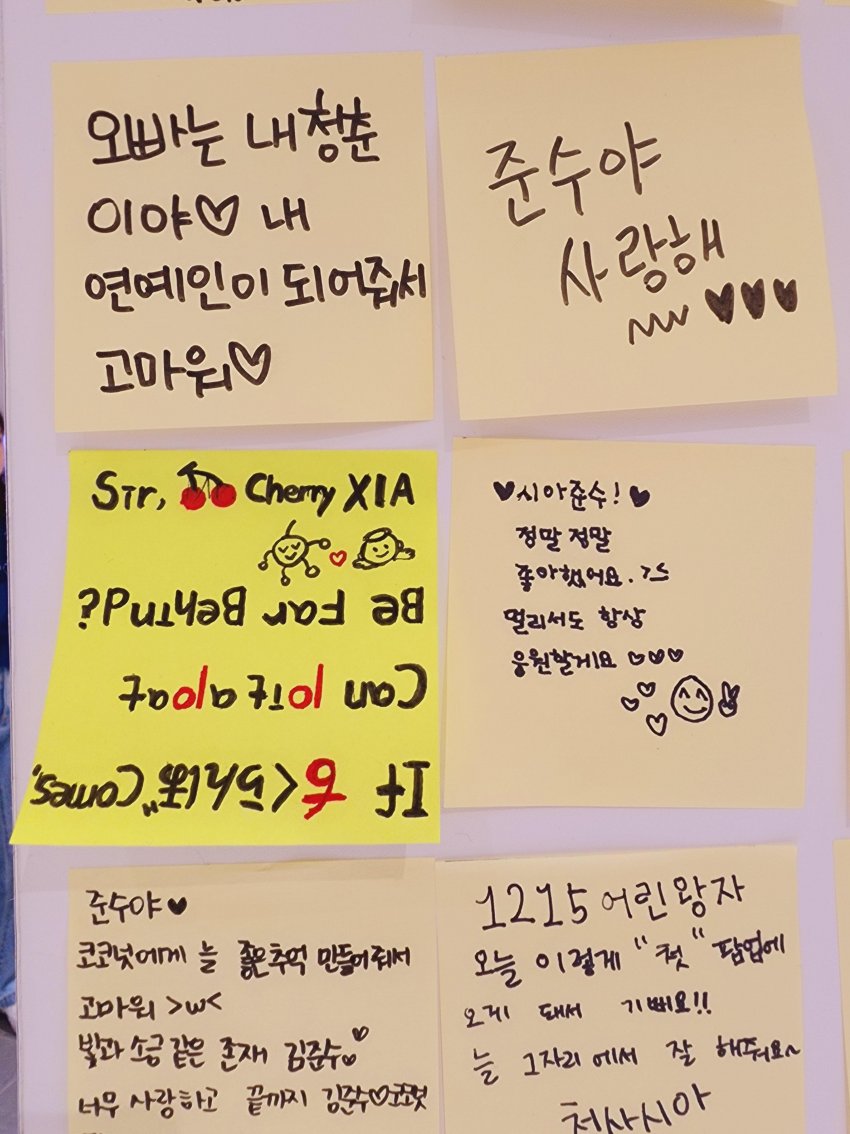 오빠는 내 청춘
이야♡ 내
연예인이 되어줘서
고마워♡
준수야
사랑해
♥♥♥
Sir, Cherry XIA
If Comes,
Can
Be Far Behind?
♥시아준수!♥
정말 정말
좋아했어요.
멀리서도 항상
응원할게요 ♡♡♡
준수야♥
코코넛에게 늘 좋은 추억 만들어줘서
고마워 >w<
빛과 소금 같은 존재 김준수
너무 사랑하고 끝까지 김준수♡코코넛
1215 어린왕자
오늘 이렇게 "첫" 팝업에
오게 돼서 기뻐요!!
늘 그자리에서 잘 해줘요~
천사시아